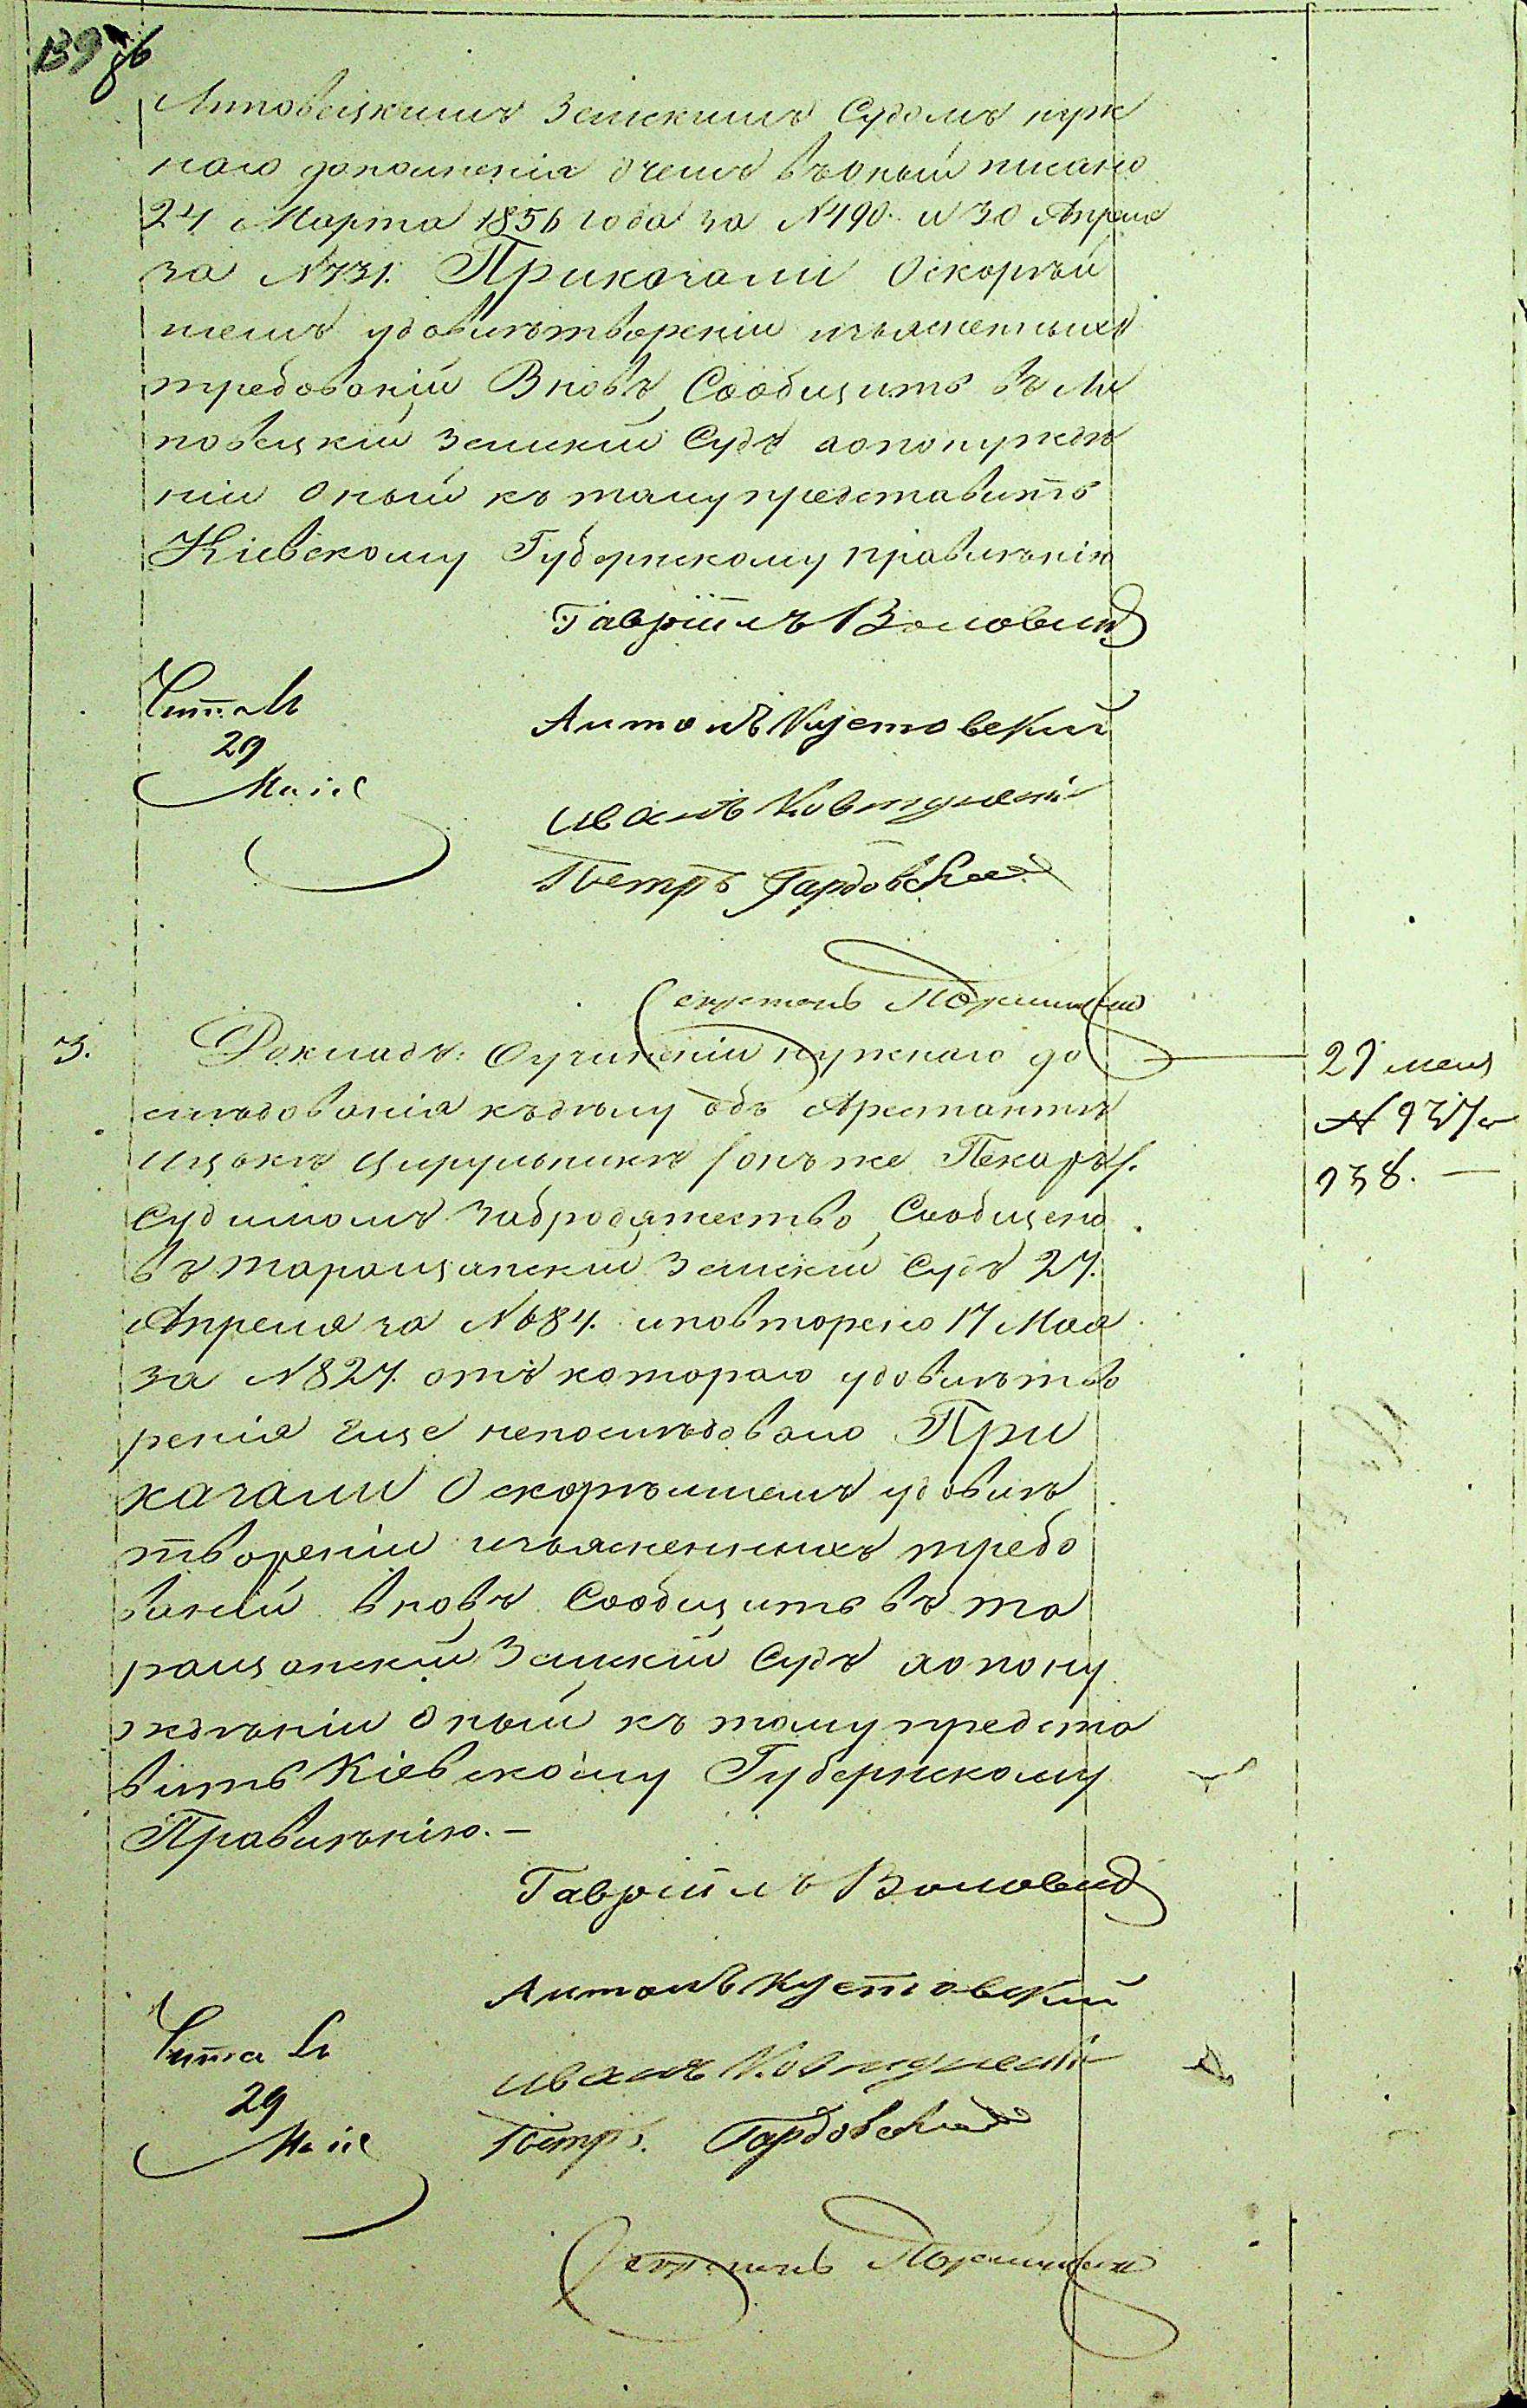 139 об
Липовецкимъ Земскимъ Судомъ нуж
наго дополненія о чемъ въ оный писано
24 Марта 1856 года за N 490. и 30 Апреля
за N 731. Приказали О скорѣй
шемъ удовлѣтвореніи изъясненныхъ
требованій Вновъ Сообщить въ Ли
повецкій Земскій Судъ а о понуждѣ
ніи оный къ тому представить
Кіевскому Губернскому правлѣнію
Гавріилъ Воловид
Читалъ
Антонъ Кустовскій
29
Маіе
Иванъ
Петръ Гардовскій
Секретарь
3.
Докладъ: О учиненіи нужнаго до
слѣдованія къ дѣлу объ Арестантѣ
Ицькѣ Цирульникѣ /онъ же Пекарь/.
Судимомъ за бродяжество, Сообщено
въ Таращанскій Земскій Судъ 27.
Апреля за N 684. и повторено 17 Мая
за N 827. отъ котораго удовлѣтво
ренія еще непослѣдовало При
казали О скорѣйшемъ удовлѣ
твореніи изъясненныхъ требо
ваній вновъ Сообщить въ Та
ращанскій Земскій Судъ а о пону
ждѣніи оный къ тому предста
вить Кіевскому Губернскому
Правлѣнію. —
29 мая
N 937 и
938. —
Гавріилъ Воловид
Антонъ Кустовскій
Читалъ
Иванъ
29
Маіе
Петръ Гардовскій
Секретарь